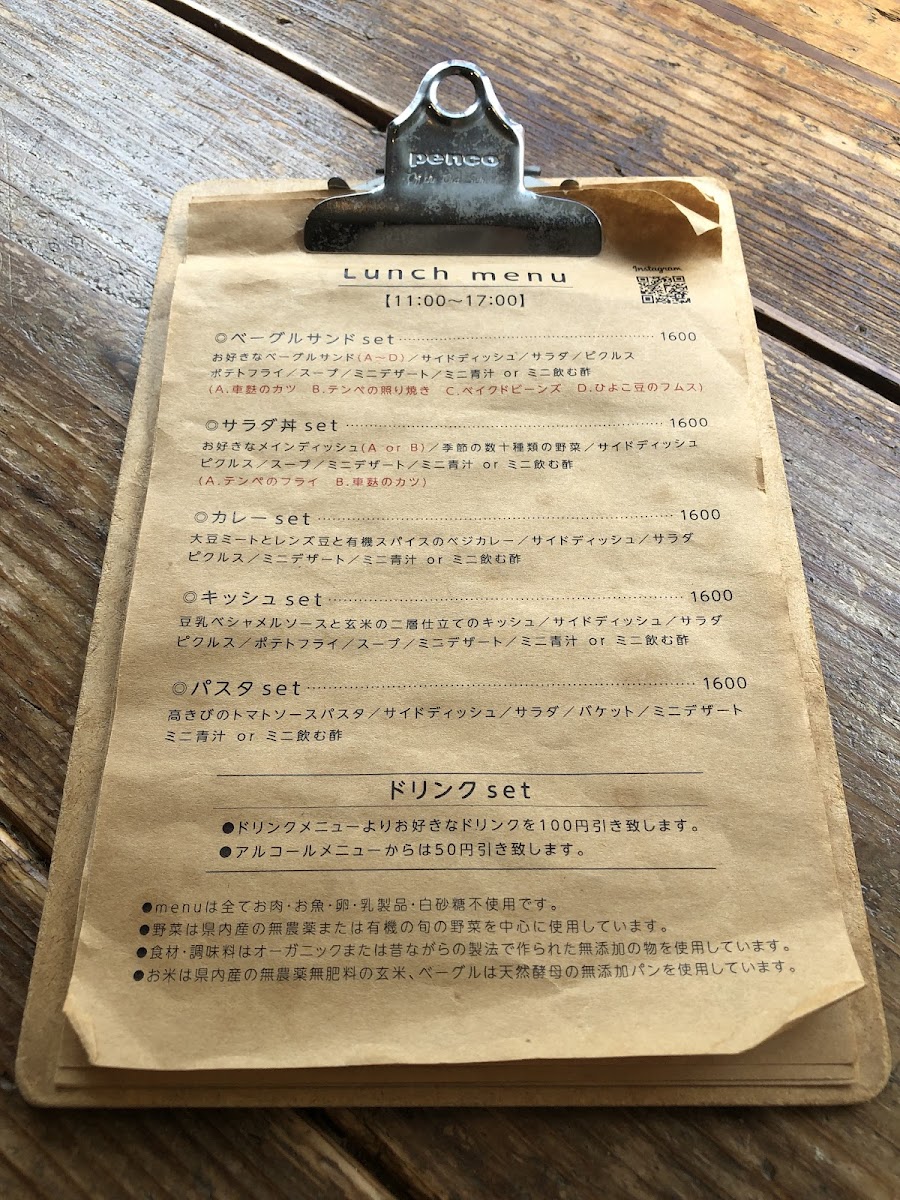 penco
Lunch menu
Instagram
【11:00〜17:00】
◎ベーグルサンドset 1600
お好きなベーグルサンド(A〜D)／サイドディッシュ／サラダ／ピクルス
ポテトフライ／スープ／ミニデザート／ミニ青汁 or ミニ飲む酢
(A.車麩のカツ B.テンペの照り焼き C.ベイクドビーンズ D.ひよこ豆のフムス)
◎サラダ丼set 1600
お好きなメインディッシュ(A or B)／季節の数十種類の野菜／サイドディッシュ
ピクルス／スープ／ミニデザート／ミニ青汁 or ミニ飲む酢
(A.テンペのフライ B.車麩のカツ)
◎カレーset 1600
大豆ミートとレンズ豆と有機スパイスのベジカレー／サイドディッシュ／サラダ
ピクルス／ミニデザート／ミニ青汁 or ミニ飲む酢
◎キッシュset 1600
豆乳ベシャメルソースと玄米の二層仕立てのキッシュ／サイドディッシュ／サラダ
ピクルス／ポテトフライ／スープ／ミニデザート／ミニ青汁 or ミニ飲む酢
◎パスタset 1600
高きびのトマトソースパスタ／サイドディッシュ／サラダ／バケット／ミニデザート
ミニ青汁 or ミニ飲む酢
ドリンクset
●ドリンクメニューよりお好きなドリンクを100円引き致します。
●アルコールメニューからは50円引き致します。
●menuは全てお肉・お魚・卵・乳製品・白砂糖不使用です。
●野菜は県内産の無農薬または有機の旬の野菜を中心に使用しています。
●食材・調味料はオーガニックまたは昔ながらの製法で作られた無添加の物を使用しています。
●お米は県内産の無農薬無肥料の玄米、ベーグルは天然酵母の無添加パンを使用しています。